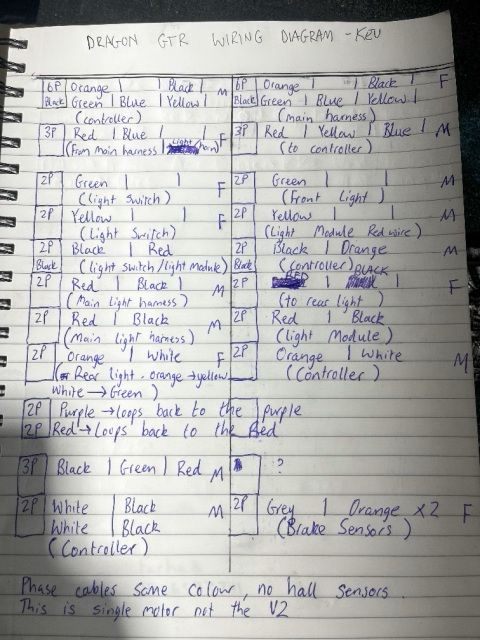 DRAGON GTR WIRING DIAGRAM - KEV
6P Orange | | Black | M 6P Orange | | Black | F
Black Green | Blue | Yellow | Black Green | Blue | Yellow |
(controller) (main harness)
3P Red | Blue | F 3P Red | Yellow | Blue | M
(From main harness | Light horn) (to controller)
2P Green | | F 2P Green | | M
(light switch) (Front Light)
2P Yellow | | F 2P Yellow | | M
(Light Switch) (Light Module Red wire)
2P Black | Red 2P Black | Orange M
Black (light switch/light module) Black (Controller)
2P Red | Black | M 2P BLACK | | F
(Main light harness) (to rear light)
2P Red | Black M 2P Red | Black
(Main light harness) (light Module)
2P Orange | White F 2P Orange | White M
(Rear light. orange → yellow (Controller)
White → Green)
2P Purple → loops back to the purple
2P Red → loops back to the Red
3P Black | Green | Red M ?
2P White | Black M 2P Grey | Orange x2 F
White | Black (Brake Sensors)
(Controller)
Phase cables same colour, no hall sensors.
This is single motor not the V2